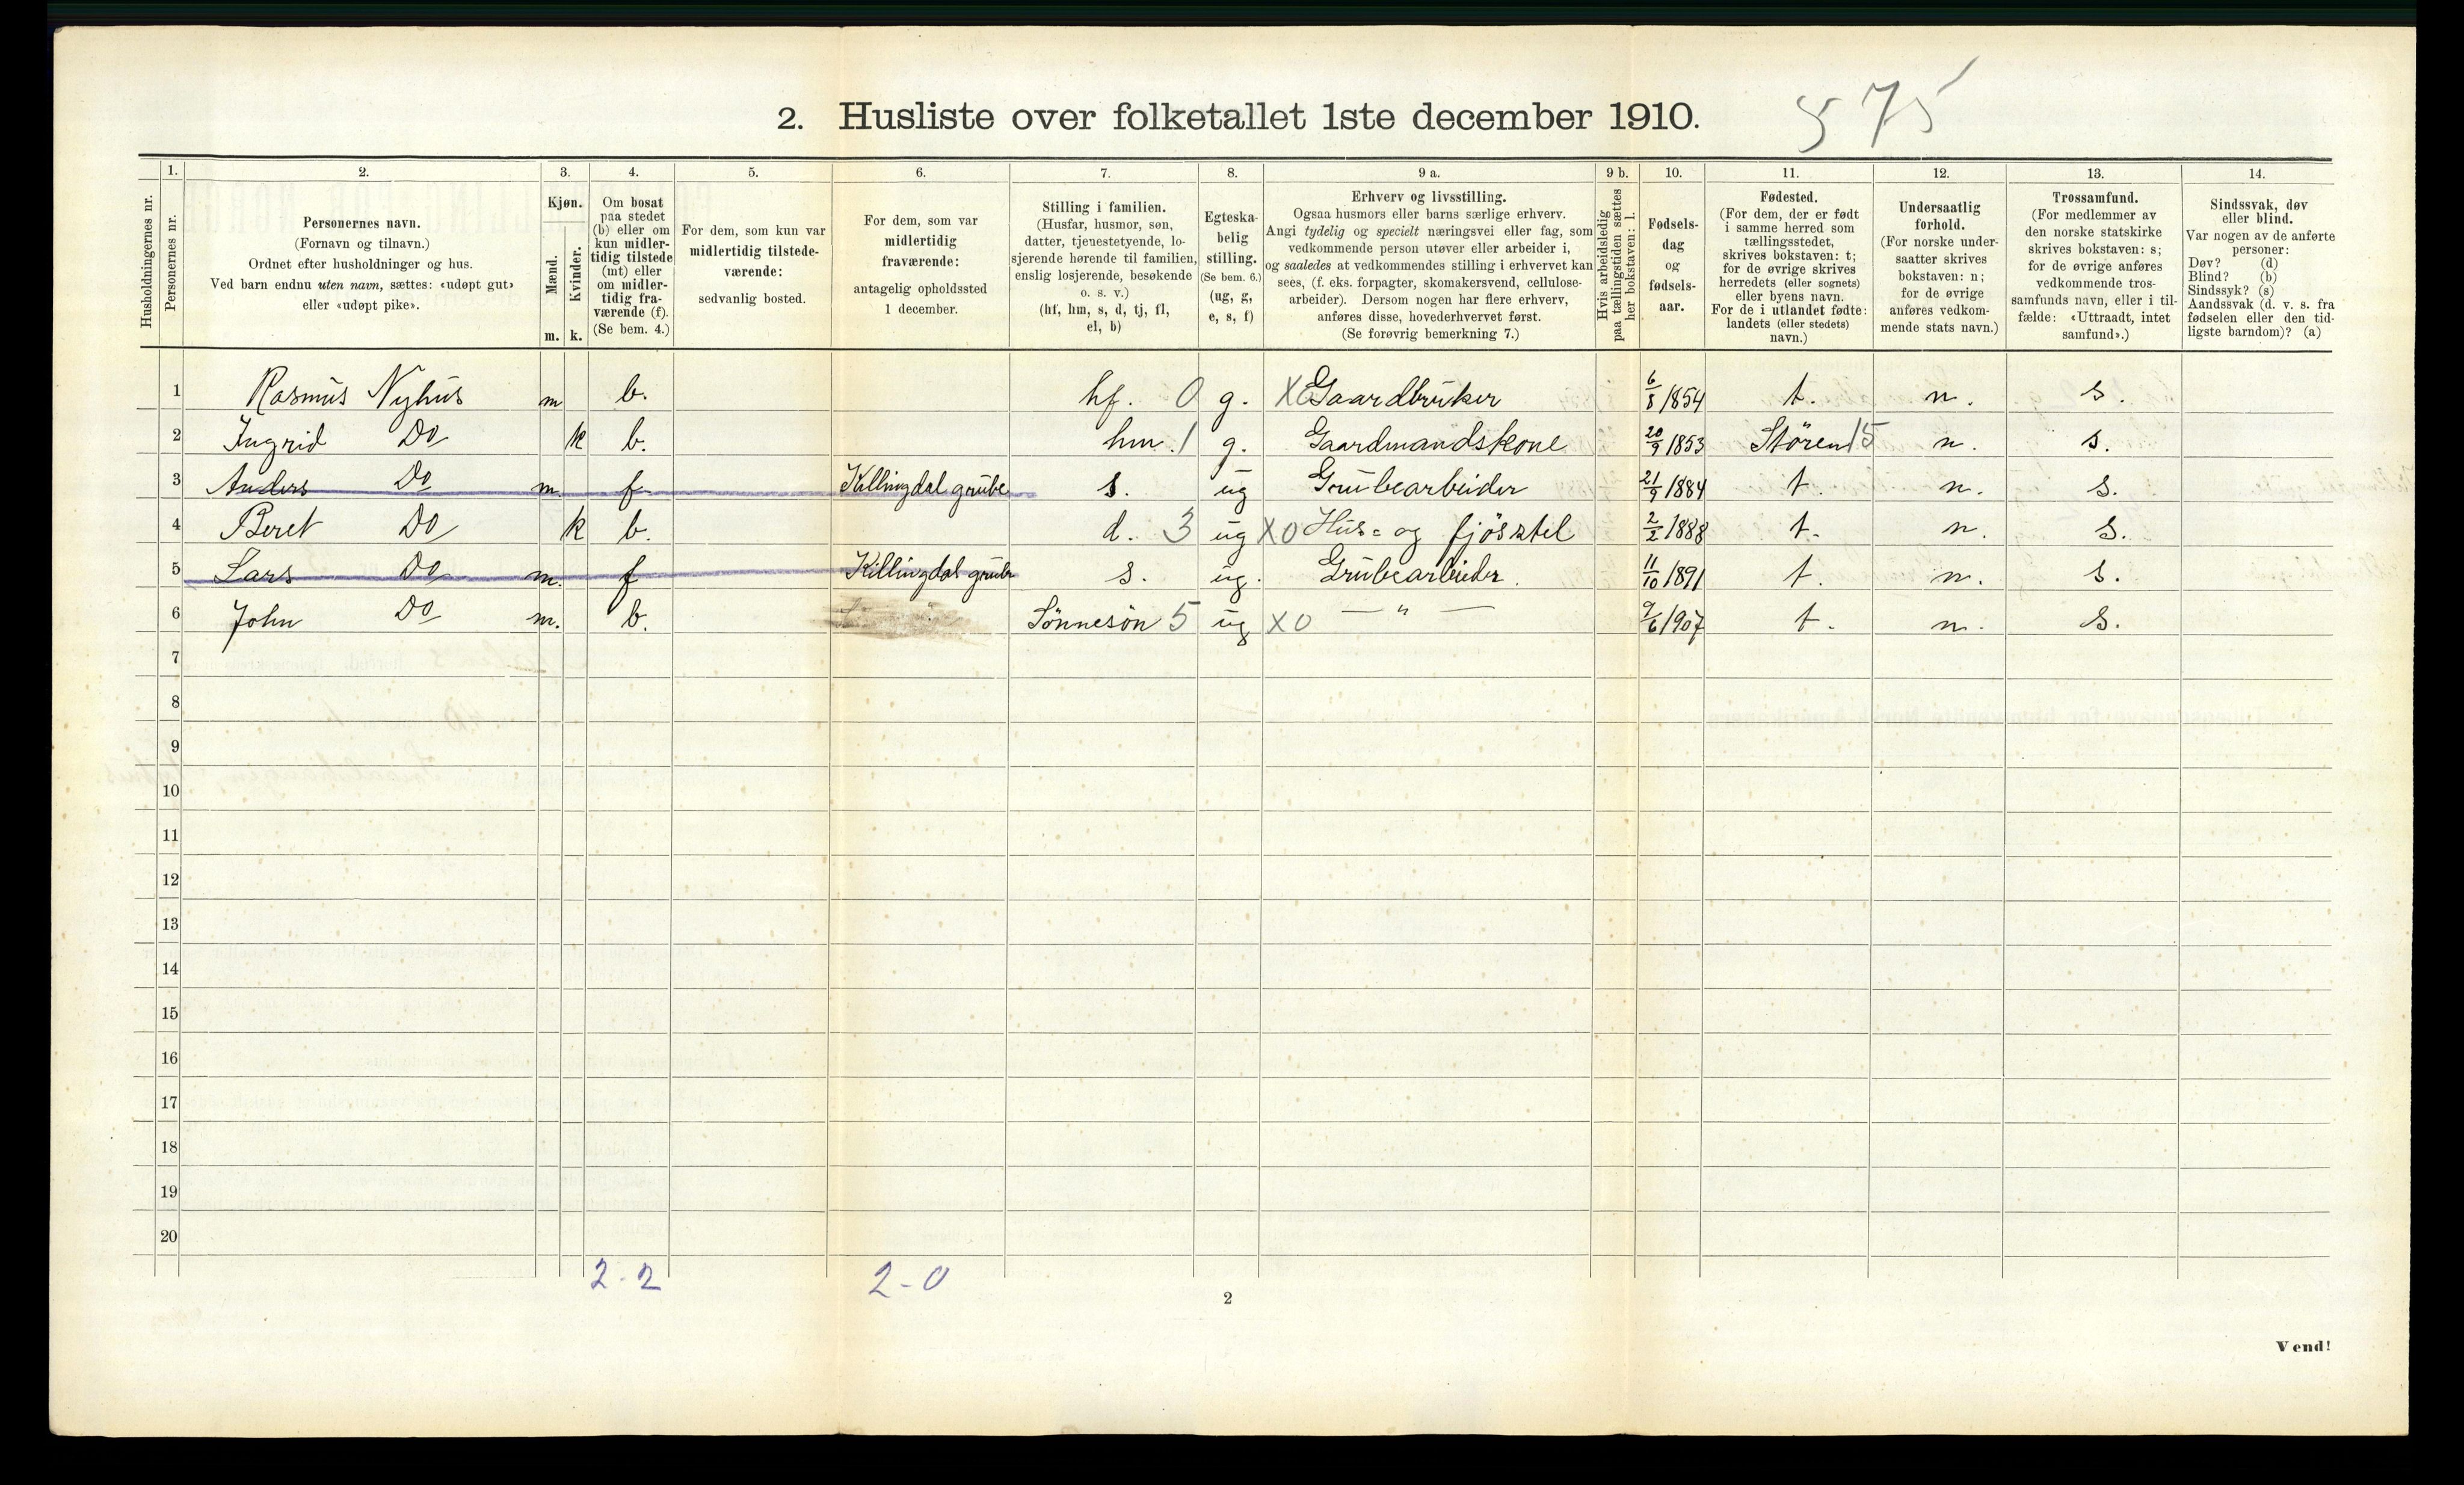 2. Husliste over folketallet 1ste december 1910.
575
Husholdningernes nr.
1.
Personernes nr.
2.
Personernes navn.
(Fornavn og tilnavn.)
Ordnet efter husholdninger og hus.
Ved barn endnu uten navn, sættes: «udøpt gut»
eller «udøpt pike».
3.
Kjøn.
Mænd.
Kvinder.
m. k.
4.
Om bosat
paa stedet
(b) eller om
kun midler-
tidig tilstede
(mt) eller
om midler-
tidig fra-
værende (f).
(Se bem. 4.)
5.
For dem, som kun var
midlertidig tilstede-
værende:
sedvanlig bosted.
6.
For dem, som var
midlertidig
fraværende:
antagelig opholdssted
1 december.
7.
Stilling i familien.
(Husfar, husmor, søn,
datter, tjenestetyende, lo-
sjerende hørende til familien,
enslig losjerende, besøkende
o. s. v.)
(hf, hm, s, d, tj, fl,
el, b)
8.
Egteska-
belig
stilling.
(Se bem. 6.)
(ug, g,
e, s, f)
9 a.
Erhverv og livsstilling.
Ogsaa husmors eller barns særlige erhverv.
Angi tydelig og specielt næringsvei eller fag, som
vedkommende person utøver eller arbeider i,
og saaledes at vedkommendes stilling i erhvervet kan
sees, (f. eks. forpagter, skomakersvend, cellulose-
arbeider). Dersom nogen har flere erhverv,
anføres disse, hovederhvervet først.
(Se forøvrig bemerkning 7.)
9 b.
Hvis arbeidsledig
paa tællingstiden sættes
her bokstaven: l.
10.
Fødsels-
dag
og
fødsels-
aar.
11.
Fødested.
(For dem, der er født
i samme herred som
tællingsstedet,
skrives bokstaven: t;
for de øvrige skrives
herredets (eller sognets)
eller byens navn.
For de i utlandet fødte:
landets (eller stedets)
navn.)
12.
Undersaatlig
forhold.
(For norske under-
saatter skrives
bokstaven: n;
for de øvrige
anføres vedkom-
mende stats navn.)
13.
Trossamfund.
(For medlemmer av
den norske statskirke
skrives bokstaven: s;
for de øvrige anføres
vedkommende tros-
samfunds navn, eller i til-
fælde: «Uttraadt, intet
samfund».)
14.
Sindssvak, døv
eller blind.
Var nogen av de anførte
personer:
Døv? (d)
Blind? (b)
Sindssyk? (s)
Aandssvak (d. v. s. fra
fødselen eller den tid-
ligste barndom)? (a)
1 Rasmus Nyhus m b. hf. 0 g. X0 Gaardbruker 6/8 1854 t. n. s.
2 Ingrid Do k b. hm. 1 g. Gaardmandskone 20/9 1853 Støren 15 n. s.
3 Anders Do m. f Killingdal grube s. ug Grubearbeider 21/9 1884 t. n. s.
4 Beret Do k b. d. 3 ug X0 Hus= og fjösstel 2/2 1888 t. n. s.
5 Lars Do m. f Killingdal grube s. ug. Grubearbeider. 11/10 1891 t. n. s.
6 John Do m. b. Sönnesön 5 ug X0 — " — 9/6 1907 t. n. s.
7
8
9
10
11
12
13
14
15
16
17
18
19
20
2-2
2-0
2
Vend!